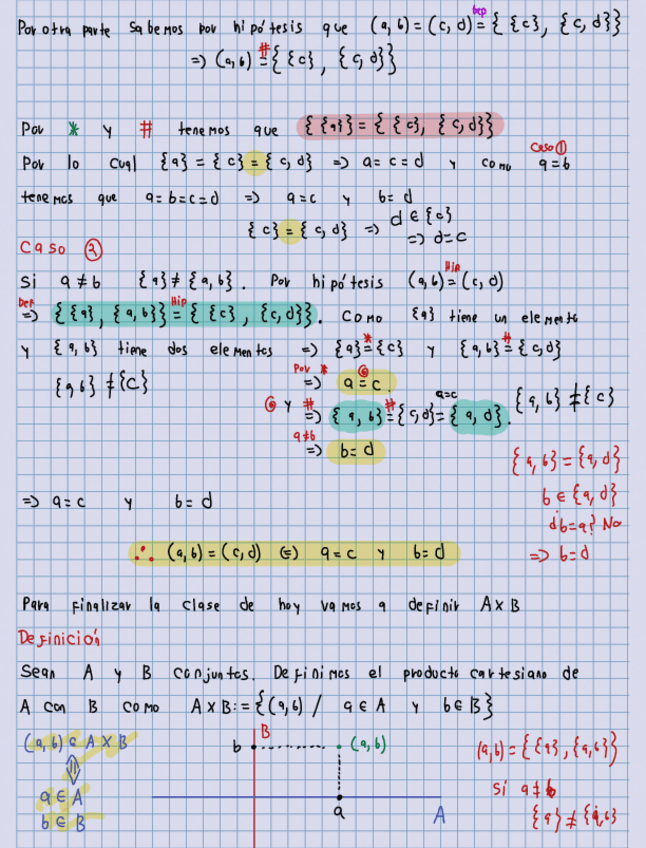 Por otra parte sabemos por hipótesis que (a, b) = (c, d) =^{Dep} { {c}, {c, d}}
=> (a, b) =^{#} { {c}, {c, d}}
Por * y # tenemos que { {a}} = { {c}, {c, d}}
Caso ①
Por lo cual {a} = {c} = {c, d} => a = c = d y como a = b
tenemos que a = b = c = d => a = c y b = d
{c} = {c, d} => d ∈ {c}
=> d = c
Caso ②
Si a ≠ b {a} ≠ {a, b}. Por hipótesis (a, b) =^{Hip} (c, d)
Def => { {a}, {a, b}} =^{Hip} { {c}, {c, d}}. Como {a} tiene un elemento
y {a, b} tiene dos elementos => {a} =^{*} {c} y {a, b} =^{#} {c, d}
{a, b} ≠ {c} Por * => a = c
y # => {a, b} =^{#} {c, d} =^{a=c} {a, d}. {a, b} ≠ {c}
a≠b => b = d
{a, b} = {a, d}
b ∈ {a, d}
¿b = a? No
=> b = d
=> a = c y b = d
∴ (a, b) = (c, d) <=> a = c y b = d
Para finalizar la clase de hoy vamos a definir A x B
Definición
Sean A y B conjuntos. Definimos el producto cartesiano de
A con B como A x B := {(a, b) / a ∈ A y b ∈ B}
(a, b) ∈ A x B
⇕
a ∈ A
b ∈ B
B
b (a, b)
a A
(a, b) = { {a}, {a, b}}
si a ≠ b
{a} ≠ {a, b}